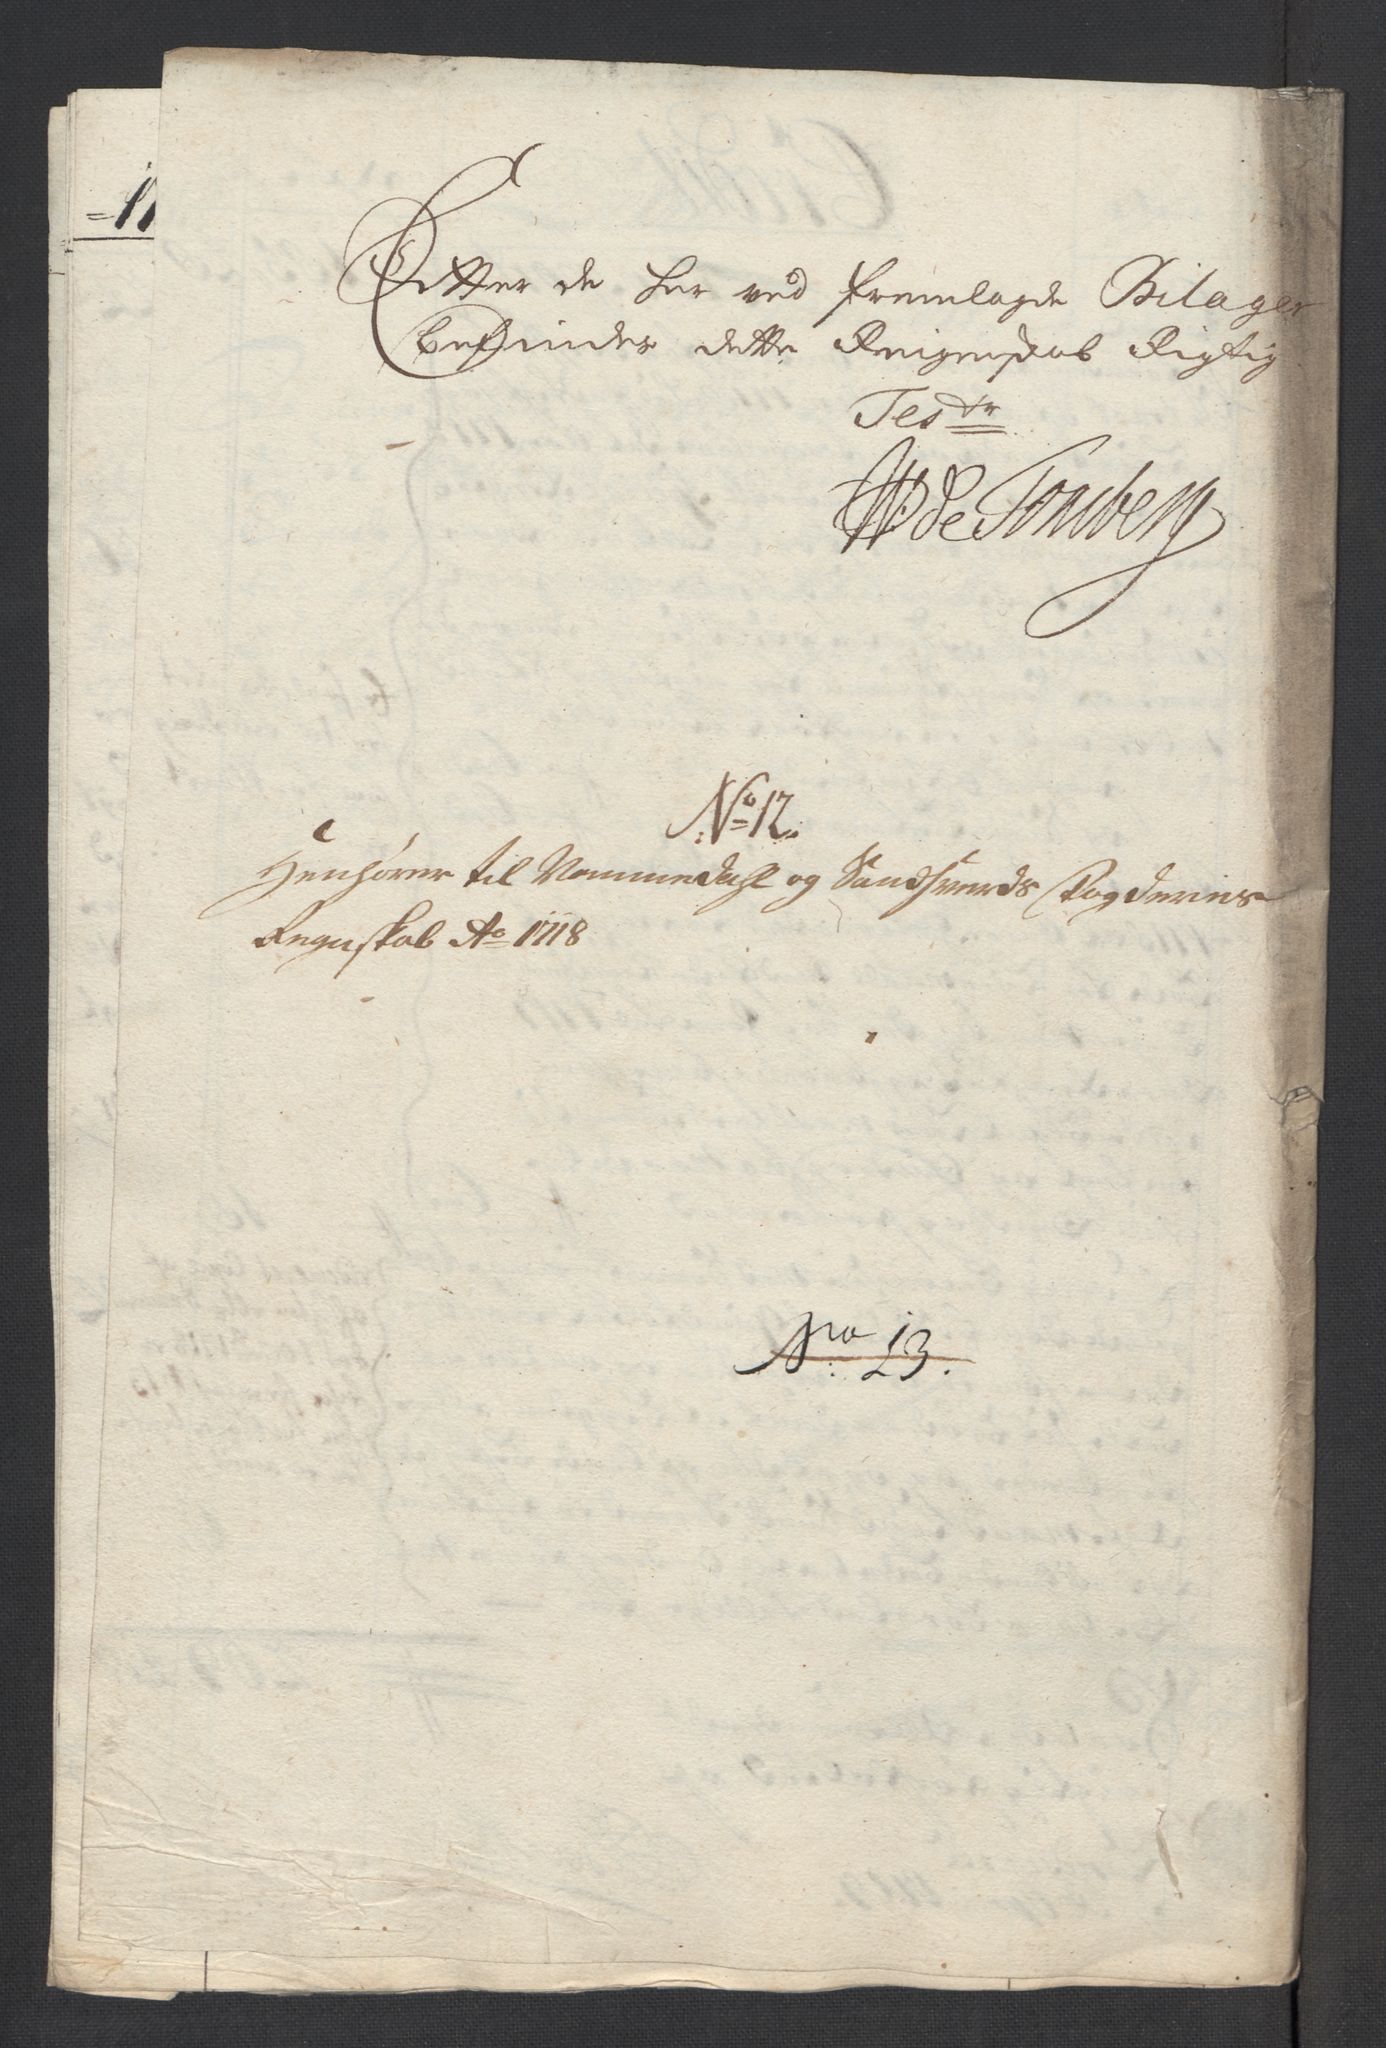 Efter de her ved fremlagde Bilager
befindes dette Reigenskab Rigtig
Test<sup>r</sup>
WDe Tonsberg
No 12.
Henhører til Nommedahl og Sandsværds Fogderies
Regnskab Ao 1718
No 13.